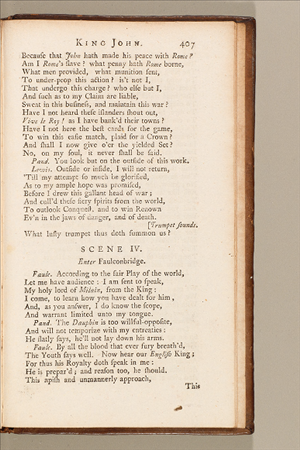 KING JOHN. 407
Because that John hath made his peace with Rome?
Am I Rome's slave? what penny hath Rome borne,
What men provided, what munition sent,
To under-prop this action? is't not I,
That undergo this charge? who else but I,
And such as to my Claim are liable,
Sweat in this business, and maintain this war?
Have I not heard these islanders shout out,
Vive le Roy! as I have bank'd their towns?
Have I not here the best cards for the game,
To win this easie match, plaid for a Crown?
And shall I now give o'er the yielded Set?
No, on my soul, it never shall be said.
Pand. You look but on the outside of this work.
Lewis. Outside or inside, I will not return,
'Till my attempt so much be glorified,
As to my ample hope was promised,
Before I drew this gallant head of war;
And cull'd these fiery spirits from the world,
To outlook Conquest, and to win Renown
Ev'n in the jaws of danger, and of death.
[Trumpet sounds.
What lusty trumpet thus doth summon us?
SCENE IV.
Enter Faulconbridge.
Faulc. According to the fair Play of the world,
Let me have audience: I am sent to speak,
My holy lord of Milain, from the King:
I come, to learn how you have dealt for him,
And, as you answer, I do know the scope,
And warrant limited unto my tongue.
Pand. The Dauphin is too willful-opposite,
And will not temporize with my entreaties:
He flatly says, he'll not lay down his arms.
Faulc. By all the blood that ever fury breath'd,
The Youth says well. Now hear our English King;
For thus his Royalty doth speak in me:
He is prepar'd; and reason too, he should.
This apish and unmannerly approach,
This